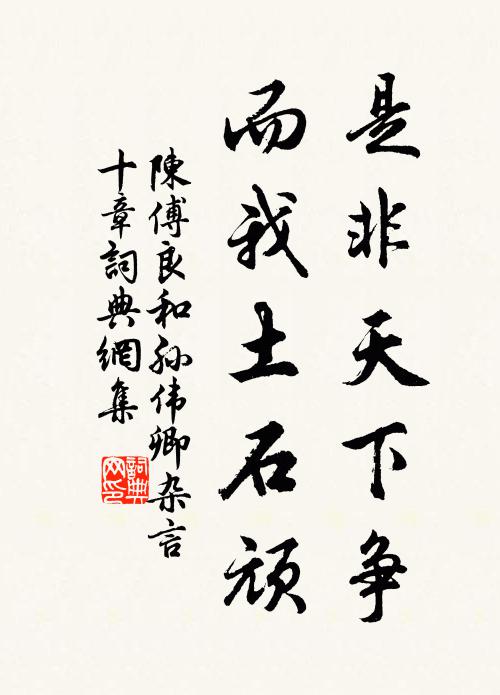 是非天下争
而我土石頑
陳傅良和孙伟卿杂言
十章詞典網集
詞典
网印